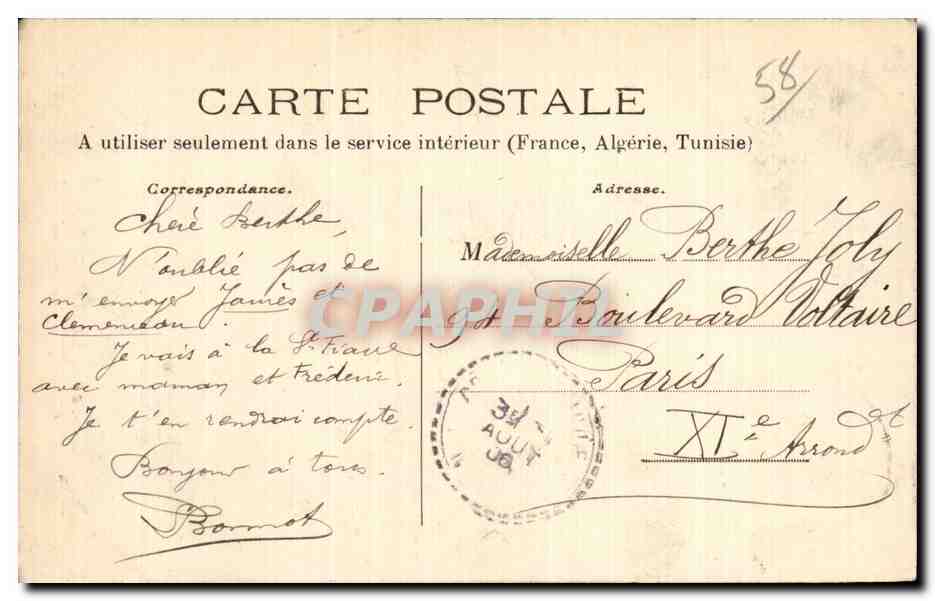 58/
CARTE POSTALE
A utiliser seulement dans le service intérieur (France, Algérie, Tunisie)
Correspondance.
Adresse.
Cheré Berthe,
N'oublié pas de
m'envoyer Jamès et
Clemenceau.
Je vais à la St Fiacre
avec maman et Fréderic.
Je t'en rendrai compte.
Bonjour à tous.
Bonnot
Mademoiselle Berthe Joly
Boulevard Voltaire
Paris
XIe Arrondt
CPAPHIL
31
AOUT
06